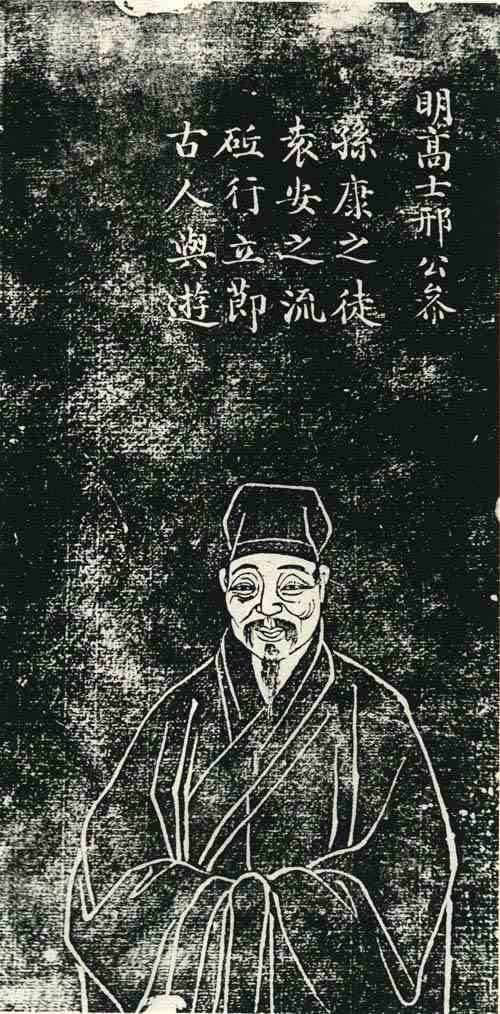 明高士邢公參
孫康之徒
袁安之流
砥行立節
古人與遊